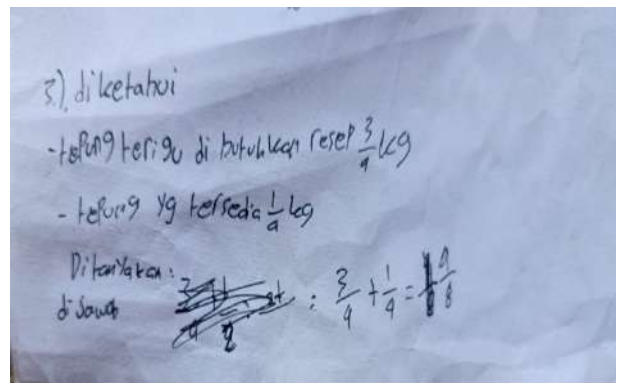 3). diketahui
- tepung terigu di butuhkan resep 3/4 kg
- tepung yg tersedia 1/4 kg
Ditanyakan :
di Jawab : 3/4 + 1/4 = 4/8